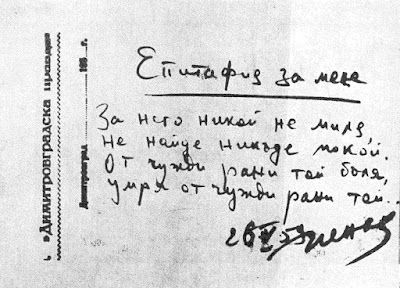 »ДИМИТРОВГРАДСКА правда«
Димитровград 195 г.
Епитафия за мене
За него никой не миля,
не найде никъде покой.
От чужди рани той боля,
умря от чужди рани той...
26 Пенев